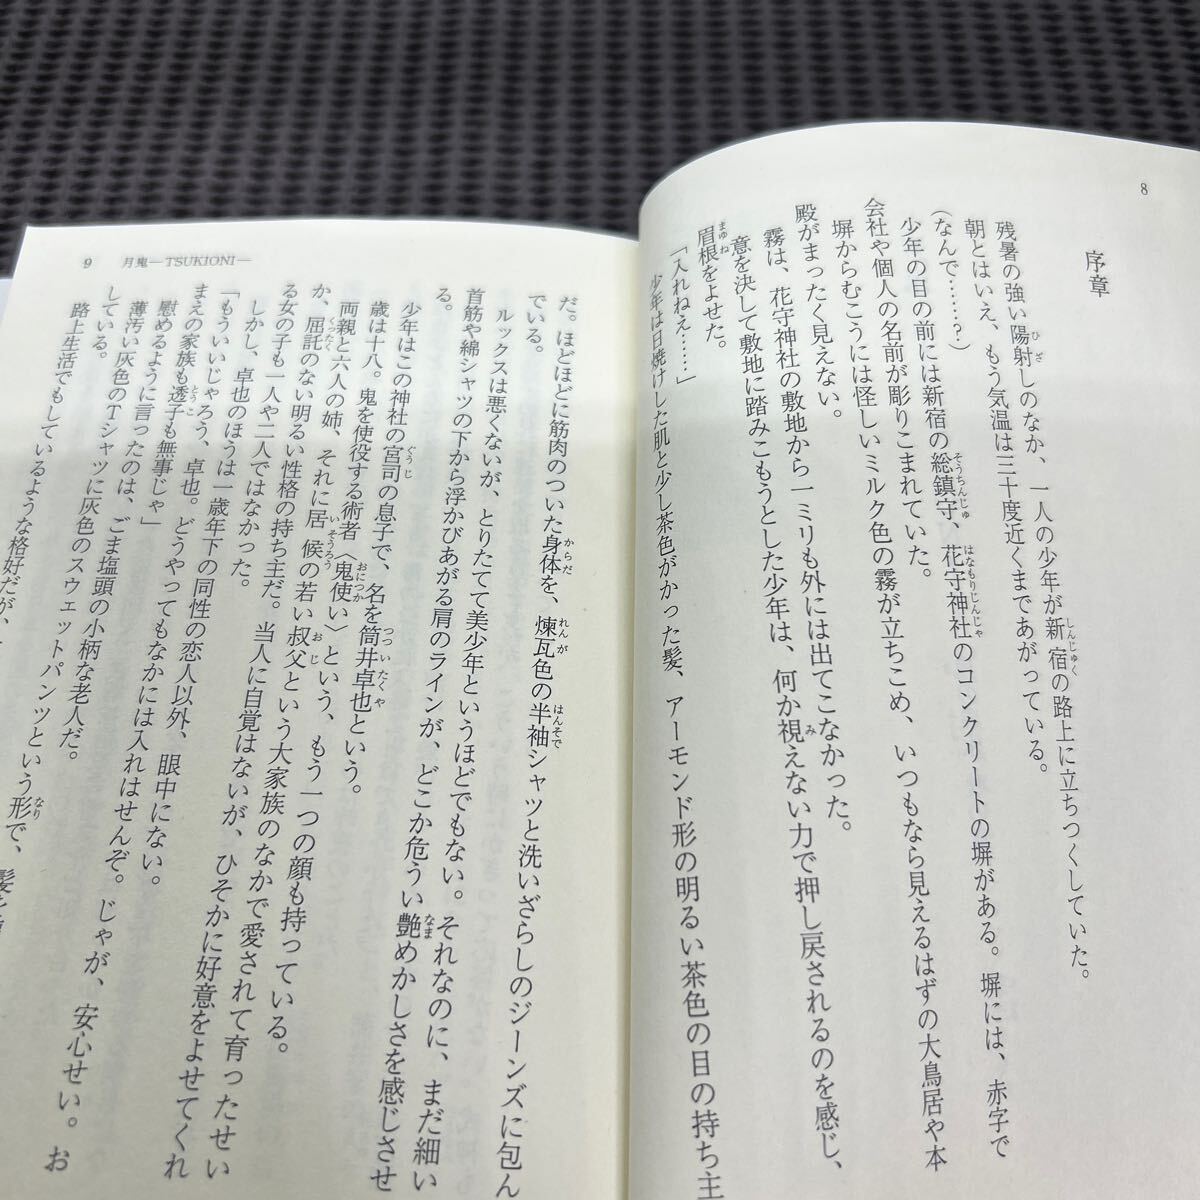 8
序章
残暑の強い陽射しのなか、一人の少年が新宿の路上に立ちつくしていた。
朝とはいえ、もう気温は三十度近くまであがっている。
(なんで……？)
少年の目の前には新宿の総鎮守、花守神社のコンクリートの塀がある。塀には、赤字で
会社や個人の名前が彫りこまれていた。
塀からむこうには怪しいミルク色の霧が立ちこめ、いつもなら見えるはずの大鳥居や本
殿がまったく見えない。
霧は、花守神社の敷地から一ミリも外には出てこなかった。
意を決して敷地に踏みこもうとした少年は、何か視えない力で押し戻されるのを感じ、
眉根をよせた。
「入れねえ……」
少年は日焼けした肌と少し茶色がかった髪、アーモンド形の明るい茶色の目の持ち主
9 月鬼―TSUKIONI―
だ。ほどほどに筋肉のついた身体を、煉瓦色の半袖シャツと洗いざらしのジーンズに包ん
でいる。
ルックスは悪くないが、とりたてて美少年というほどでもない。それなのに、まだ細い
首筋や綿シャツの下から浮かびあがる肩のラインが、どこか危うい艶めかしさを感じさせ
る。
少年はこの神社の宮司の息子で、名を筒井卓也という。
歳は十八。鬼を使役する術者〈鬼使い〉という、もう一つの顔も持っている。
両親と六人の姉、それに居候の若い叔父という大家族のなかで愛されて育ったせい
か、屈託のない明るい性格の持ち主だ。当人に自覚はないが、ひそかに好意をよせてくれ
る女の子も一人や二人ではなかった。
しかし、卓也のほうは一歳年下の同性の恋人以外、眼中にない。
「もういいじゃろう、卓也。どうやってもなかには入れはせんぞ。じゃが、安心せい。お
まえの家族も透子も無事じゃ」
慰めるように言ったのは、ごま塩頭の小柄な老人だ。
薄汚い灰色のTシャツに灰色のスウェットパンツという形で、
している。
路上生活でもしているような格好だが、